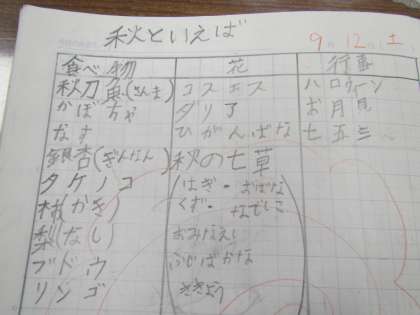 秋といえば
9月12日土
食べ物 花 行事
秋刀魚(さんま) コスモス ハロウィーン
かぼちゃ ダリア お月見
なす ひがんばな 七五三
銀杏(ぎんなん) 秋の七草
タケノコ (はぎ・おばな
柿(かき) くず・なでしこ
梨(なし) おみなえし
ブドウ ふじばかな
リンゴ ききょう)